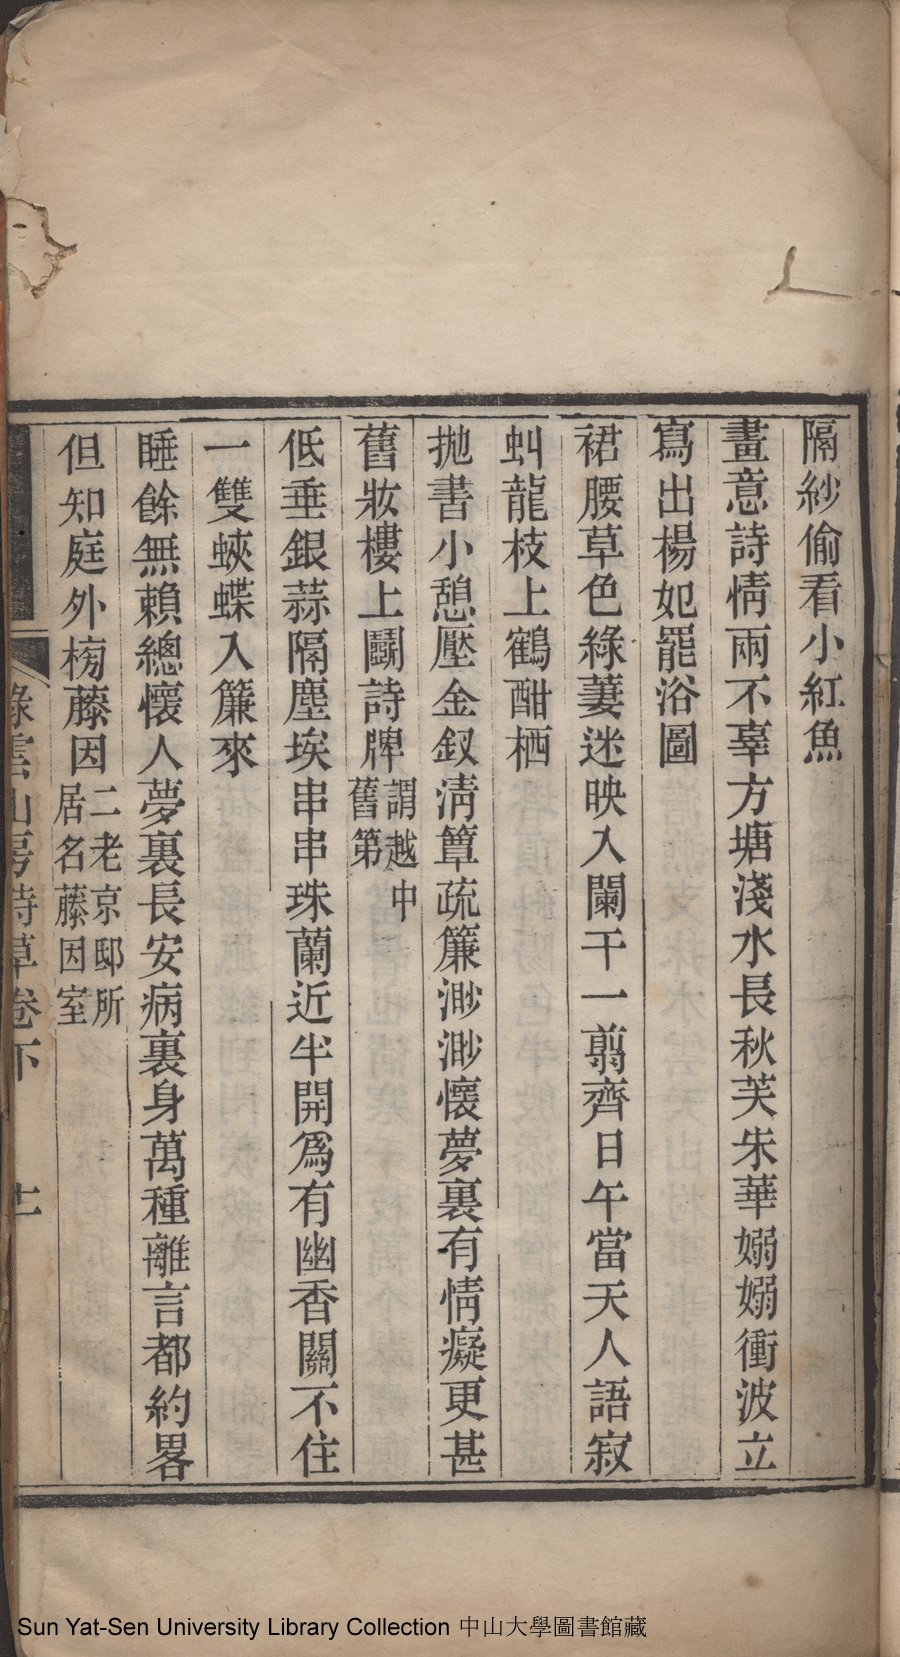 隔紗偷看小紅魚
畫意詩情兩不辜方塘淺水長秋芙朱華嫋嫋衝波立
寫出楊妃罷浴圖
裙腰草色綠萋迷映入闌干一翦齊日午當天人語寂
虬龍枝上鶴酣栖
拋書小憩壓金釵淸簟疏簾渺渺懷夢裏有情癡更甚
舊妝樓上鬭詩牌謂越中舊第
低垂銀蒜隔塵埃串串珠蘭近半開爲有幽香關不住
一雙蛺蝶入簾來
睡餘無賴總懷人夢裏長安病裏身萬種離言都約畧
但知庭外榜藤因二老京邸所居名藤因室
綠雲山房詩草卷下
十一
Sun Yat-Sen University Library Collection 中山大學圖書館藏